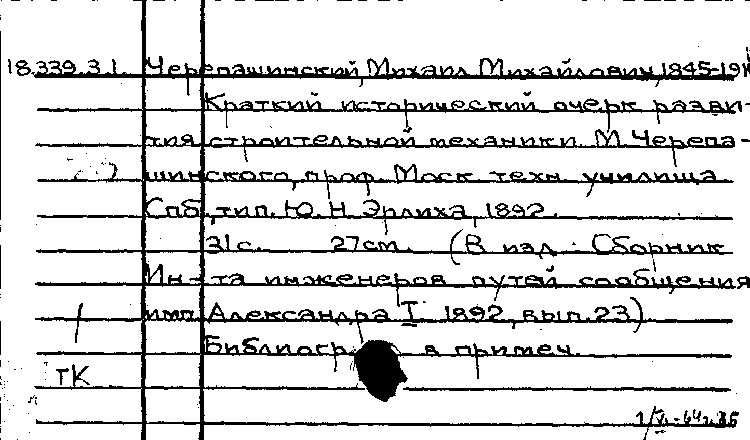 18.339.3.1. Черепашинский, Михаил Михайлович, 1845-19
Краткий исторический очерк разви-
тия строительной механики. М. Черепа-
шинского, проф. Моск. техн. училища
Спб., тип. Ю. Н. Эрлиха, 1892.
31с. 27см. (В изд.: Сборник
Ин-та инженеров путей сообщения
имп. Александра I. 1892, вып. 23)
Библиогр. в примеч.
ТК